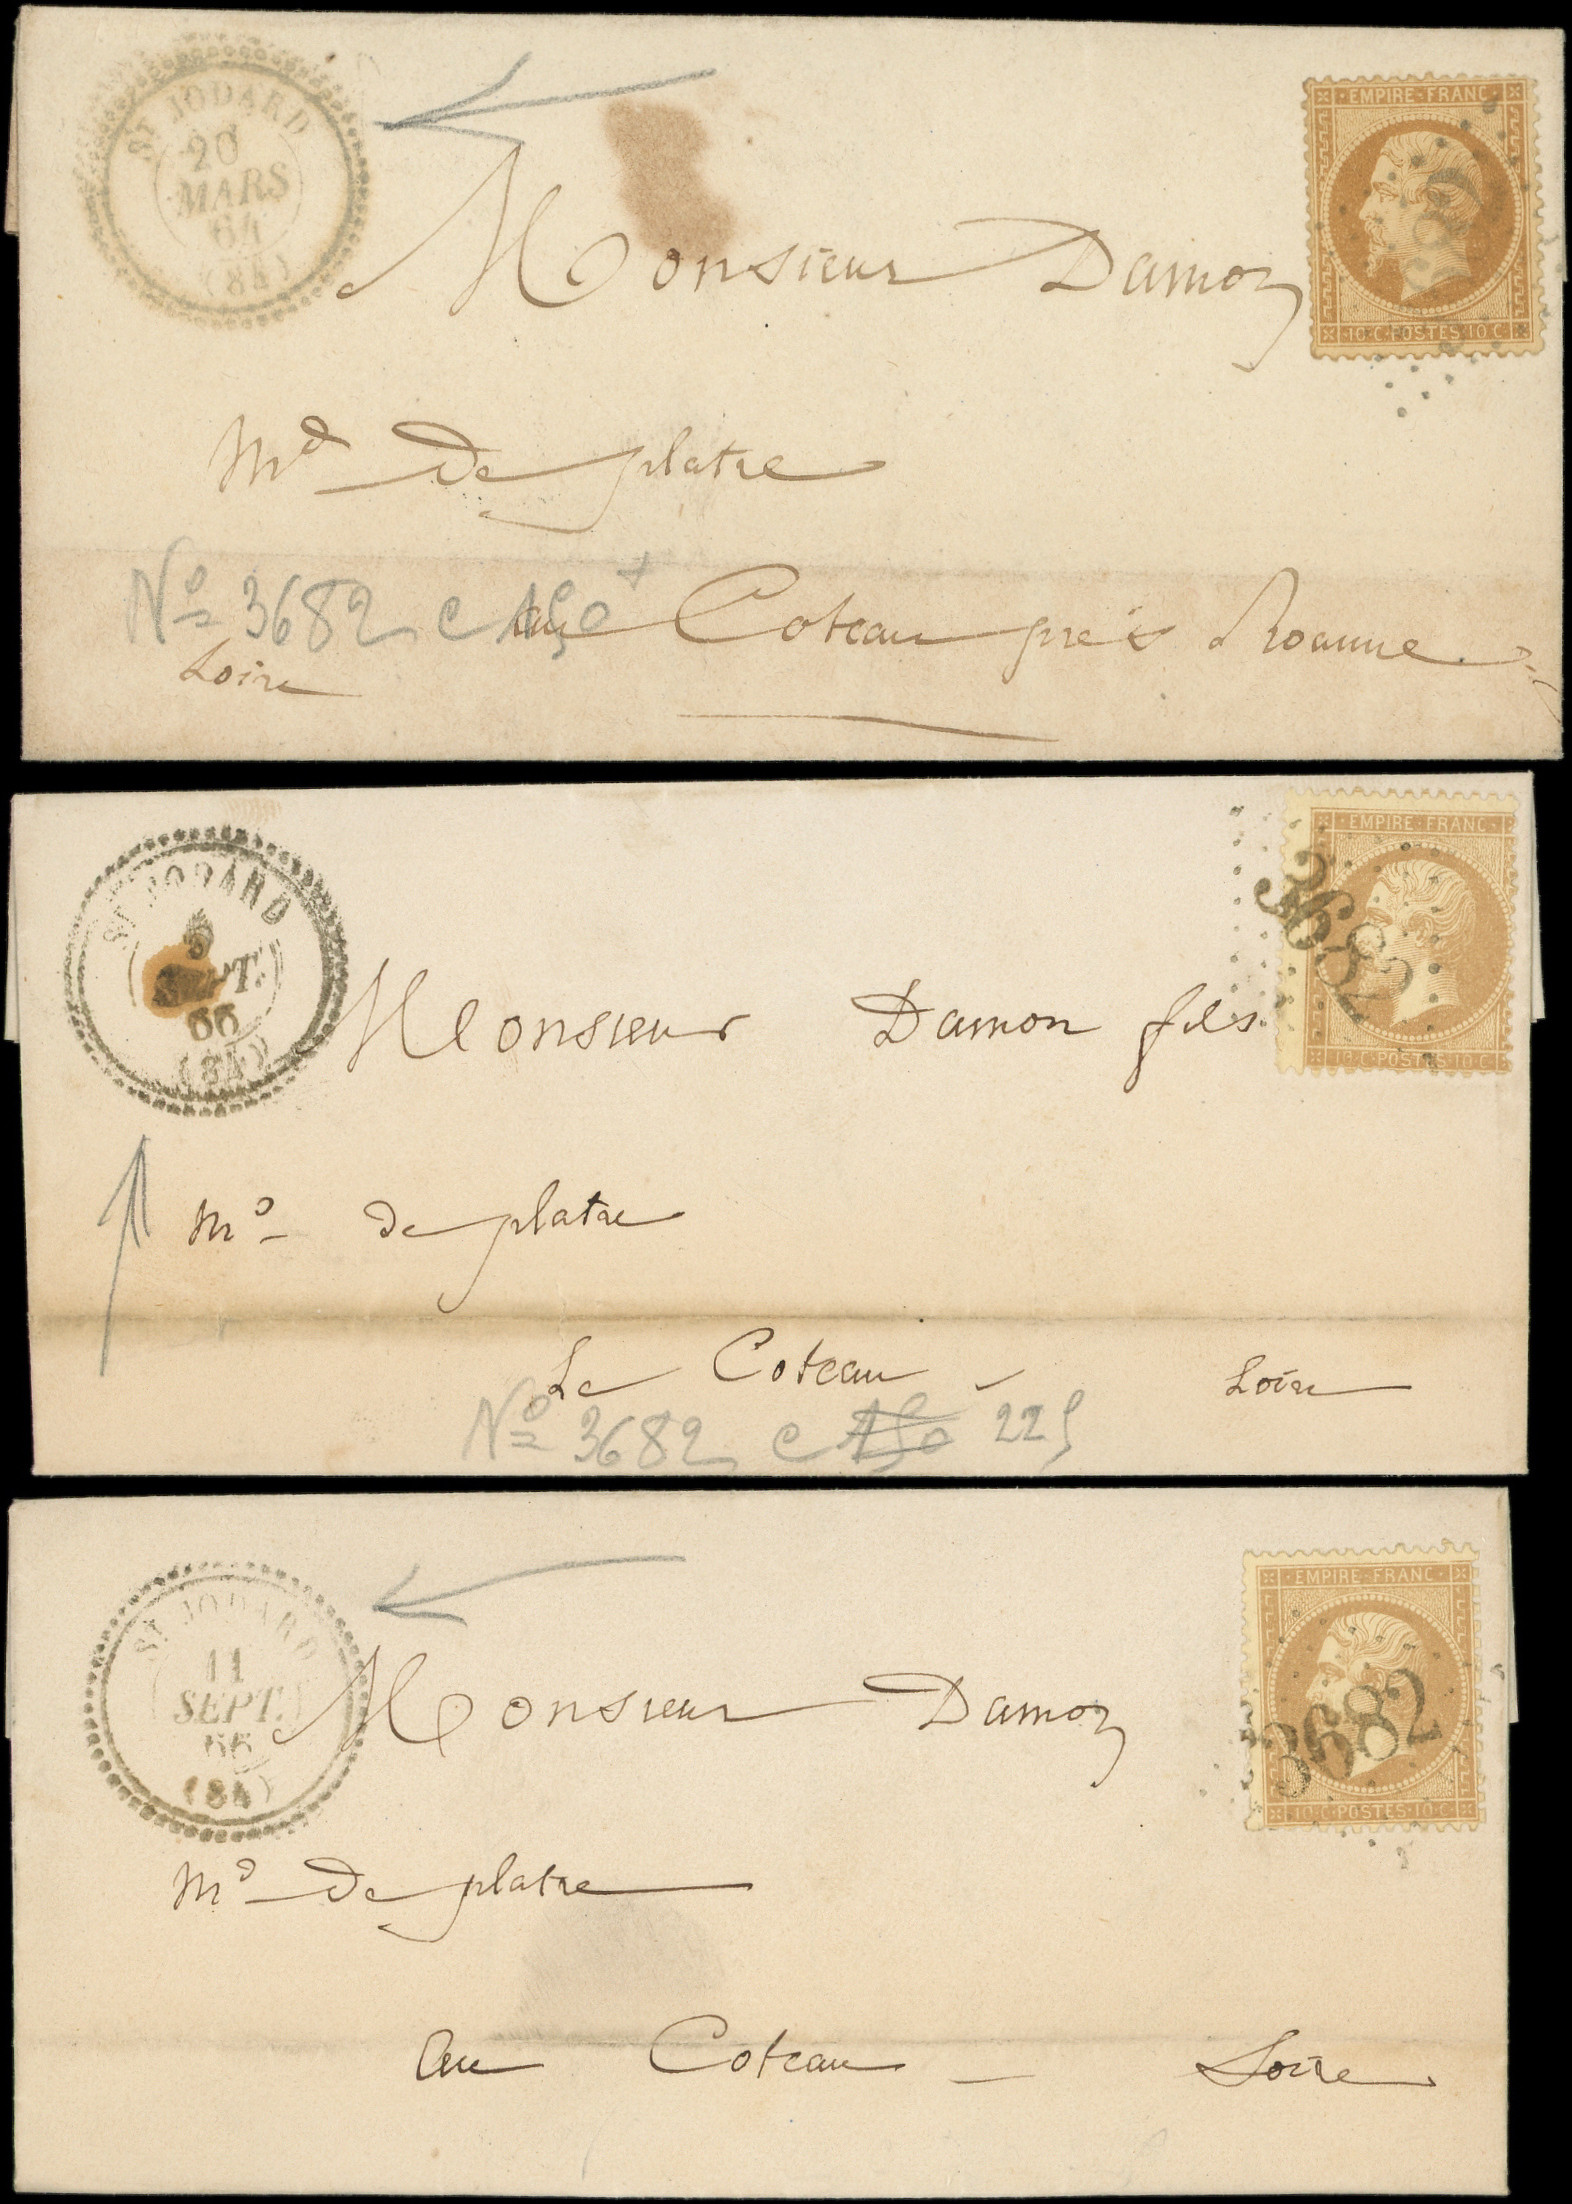 ST JODARD
20
MARS
64
(84)
EMPIRE FRANC
10 C POSTES 10 C
Monsieur Damon
Md de platre
No 3682 c 150 +
au Coteau près Roanne
Loire
ST JODARD
SEPT.
66
(84)
EMPIRE FRANC
3682
10 C POSTES 10 C
Monsieur Damon fils
Md de platre
Le Coteau Loire
No 3682 c 150 225
ST JODARD
11
SEPT.
66
(84)
EMPIRE FRANC
3682
10 C POSTES 10 C
Monsieur Damon
Md de platre
Au Coteau - Loire